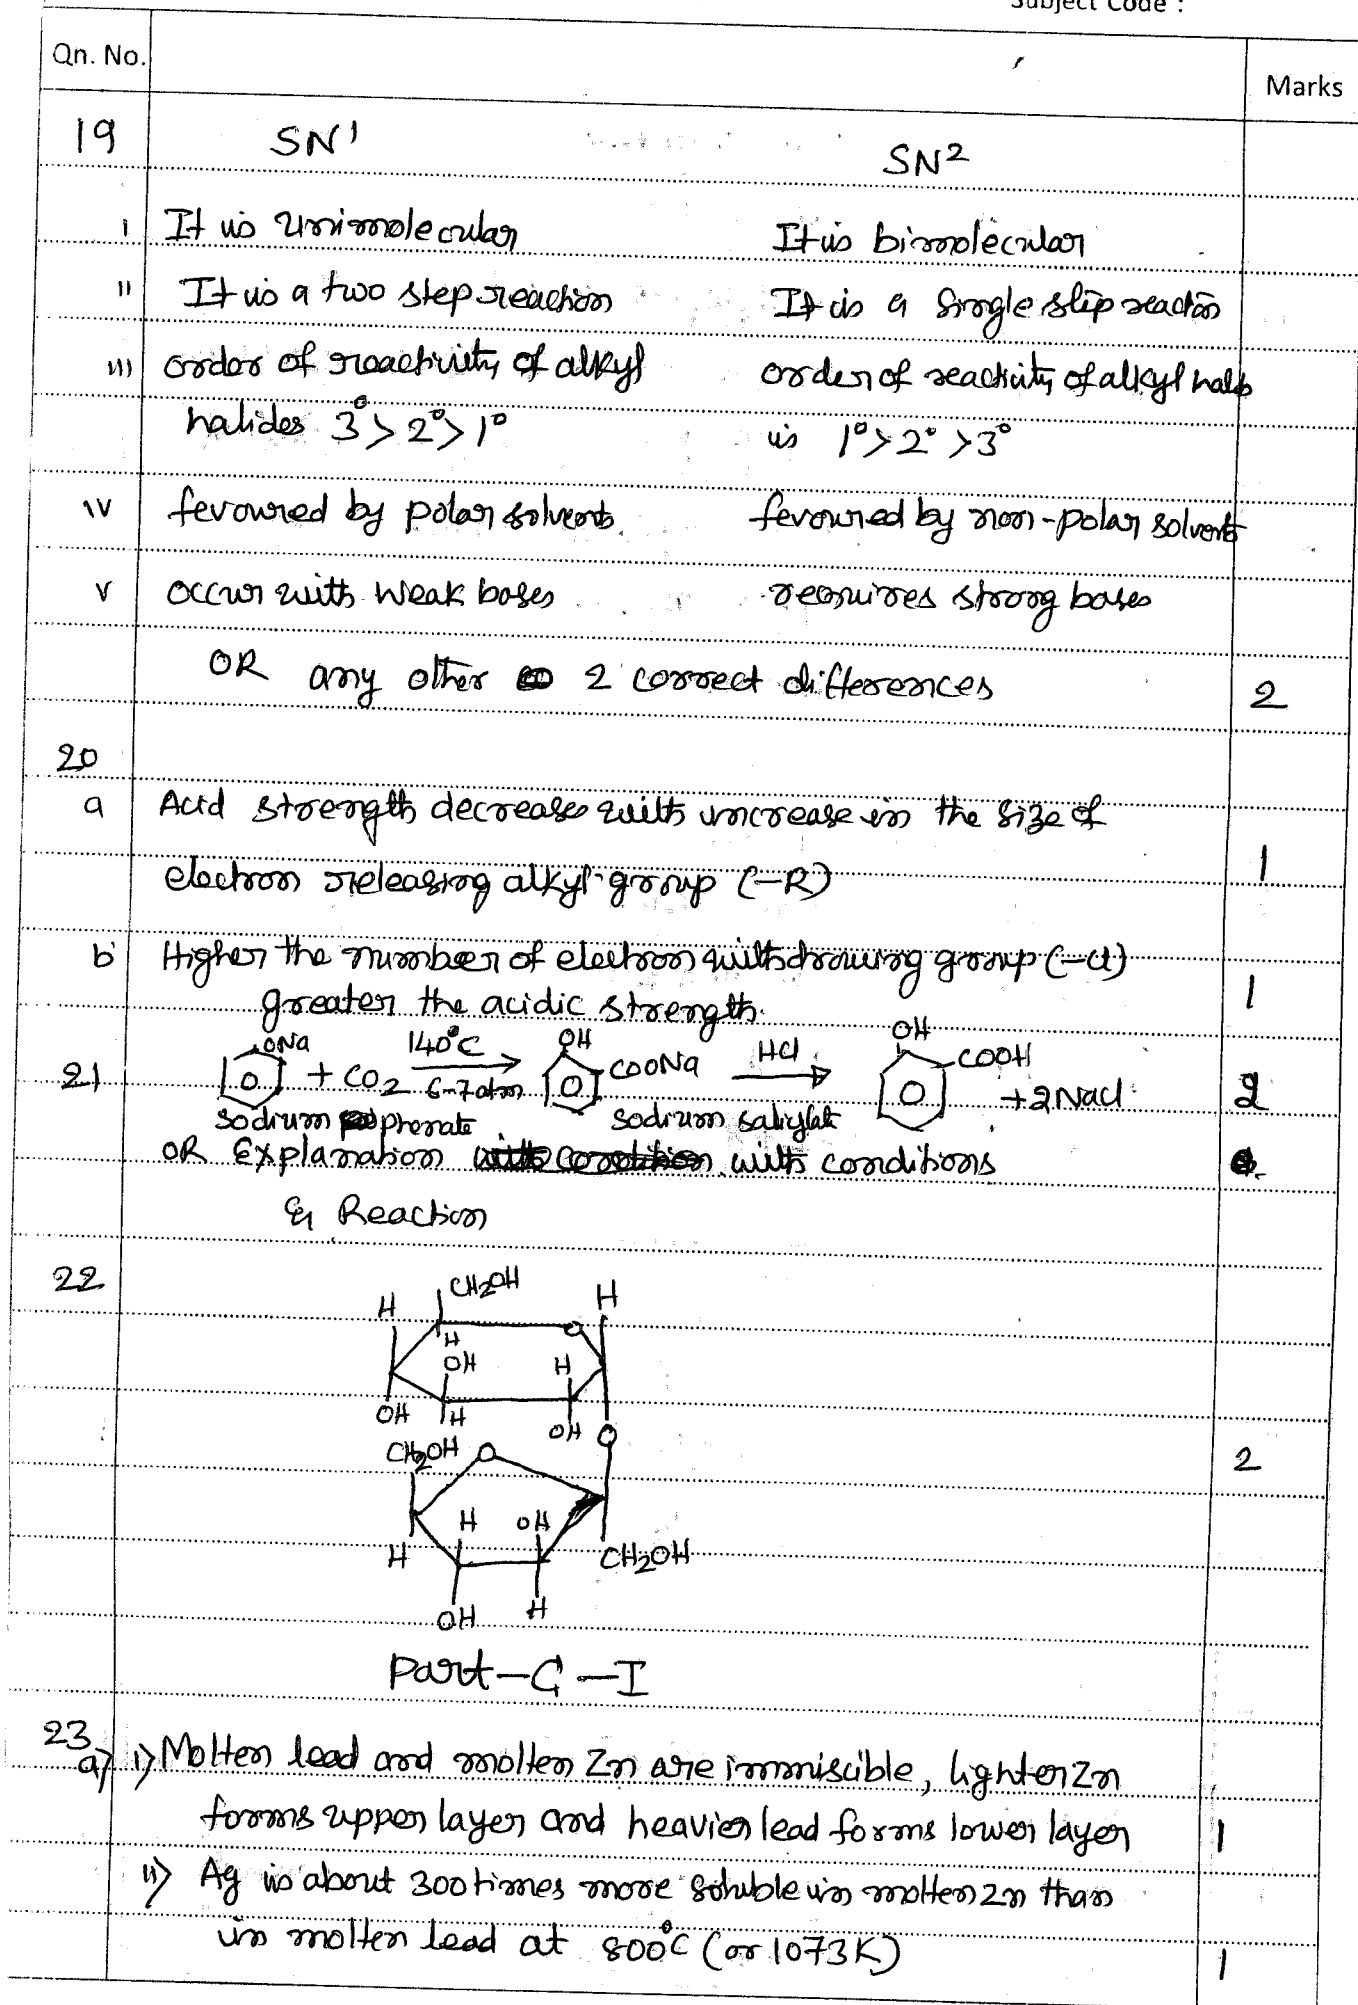 Subject Code :
Qn. No.
Marks
19 SN1 SN2
i It is Unimolecular It is bimolecular
ii It is a two step reaction It is a Single step reaction
iii order of reactivity of alkyl order of reactivity of alkyl halides
halides 3° > 2° > 1° is 1° > 2° > 3°
iv fevoured by polar solvents. fevoured by non-polar solvents
v occur with weak bases requires strong bases
OR any other 2 correct differences 2
20
a Acid strength decreases with increase in the size of
electron releasing alkyl group (-R) 1
b Higher the number of electron withdrawing group (-Cl)
greater the acidic strength. 1
ONa 140°C OH HCl OH
21 O + CO2 6-7 atm O COONa O COOH + 2NaCl 2
Sodium phenate Sodium salicylate
OR Explanation with conditions
& Reaction
22
CH2OH
H H
H
OH H
OH H OH O
CH2OH O
2
H OH
H CH2OH
OH H
Part-C-I
23
a) i) Molten lead and molten Zn are immiscible, lighter Zn
forms upper layer and heavier lead forms lower layer 1
ii) Ag is about 300 times more soluble in molten Zn than
in molten lead at 800°C (or 1073K) 1